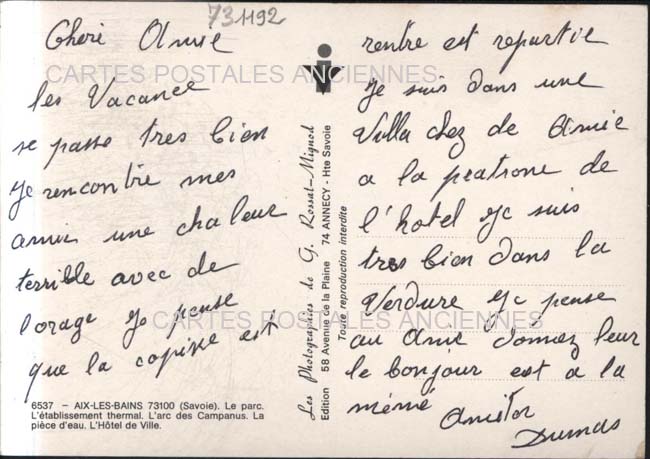 73 1192
Cheri Amie
les Vacance
se passe tres bien
Je rencontre mes
amie une chaleur
terrible avec de
l'orage Je pense
que la copine est
6537 – AIX-LES-BAINS 73100 (Savoie). Le parc.
L'établissement thermal. L'arc des Campanus. La
pièce d'eau. L'Hôtel de Ville.
Les Photographies de G. Rossat-Mignod
Edition 58 Avenue de la Plaine 74 ANNECY - Hte Savoie
Toute reproduction interdite
rentre est repartie
Je suis dans une
Villa chez de Amie
a la peatrone de
l'hotel Je suis
tres bien dans la
Verdure Je pense
au Amie donnez leur
le bonjour est a la
mémé Amitor
Dumas
CARTES POSTALES ANCIENNES
CARTES POSTALES ANCIENNES